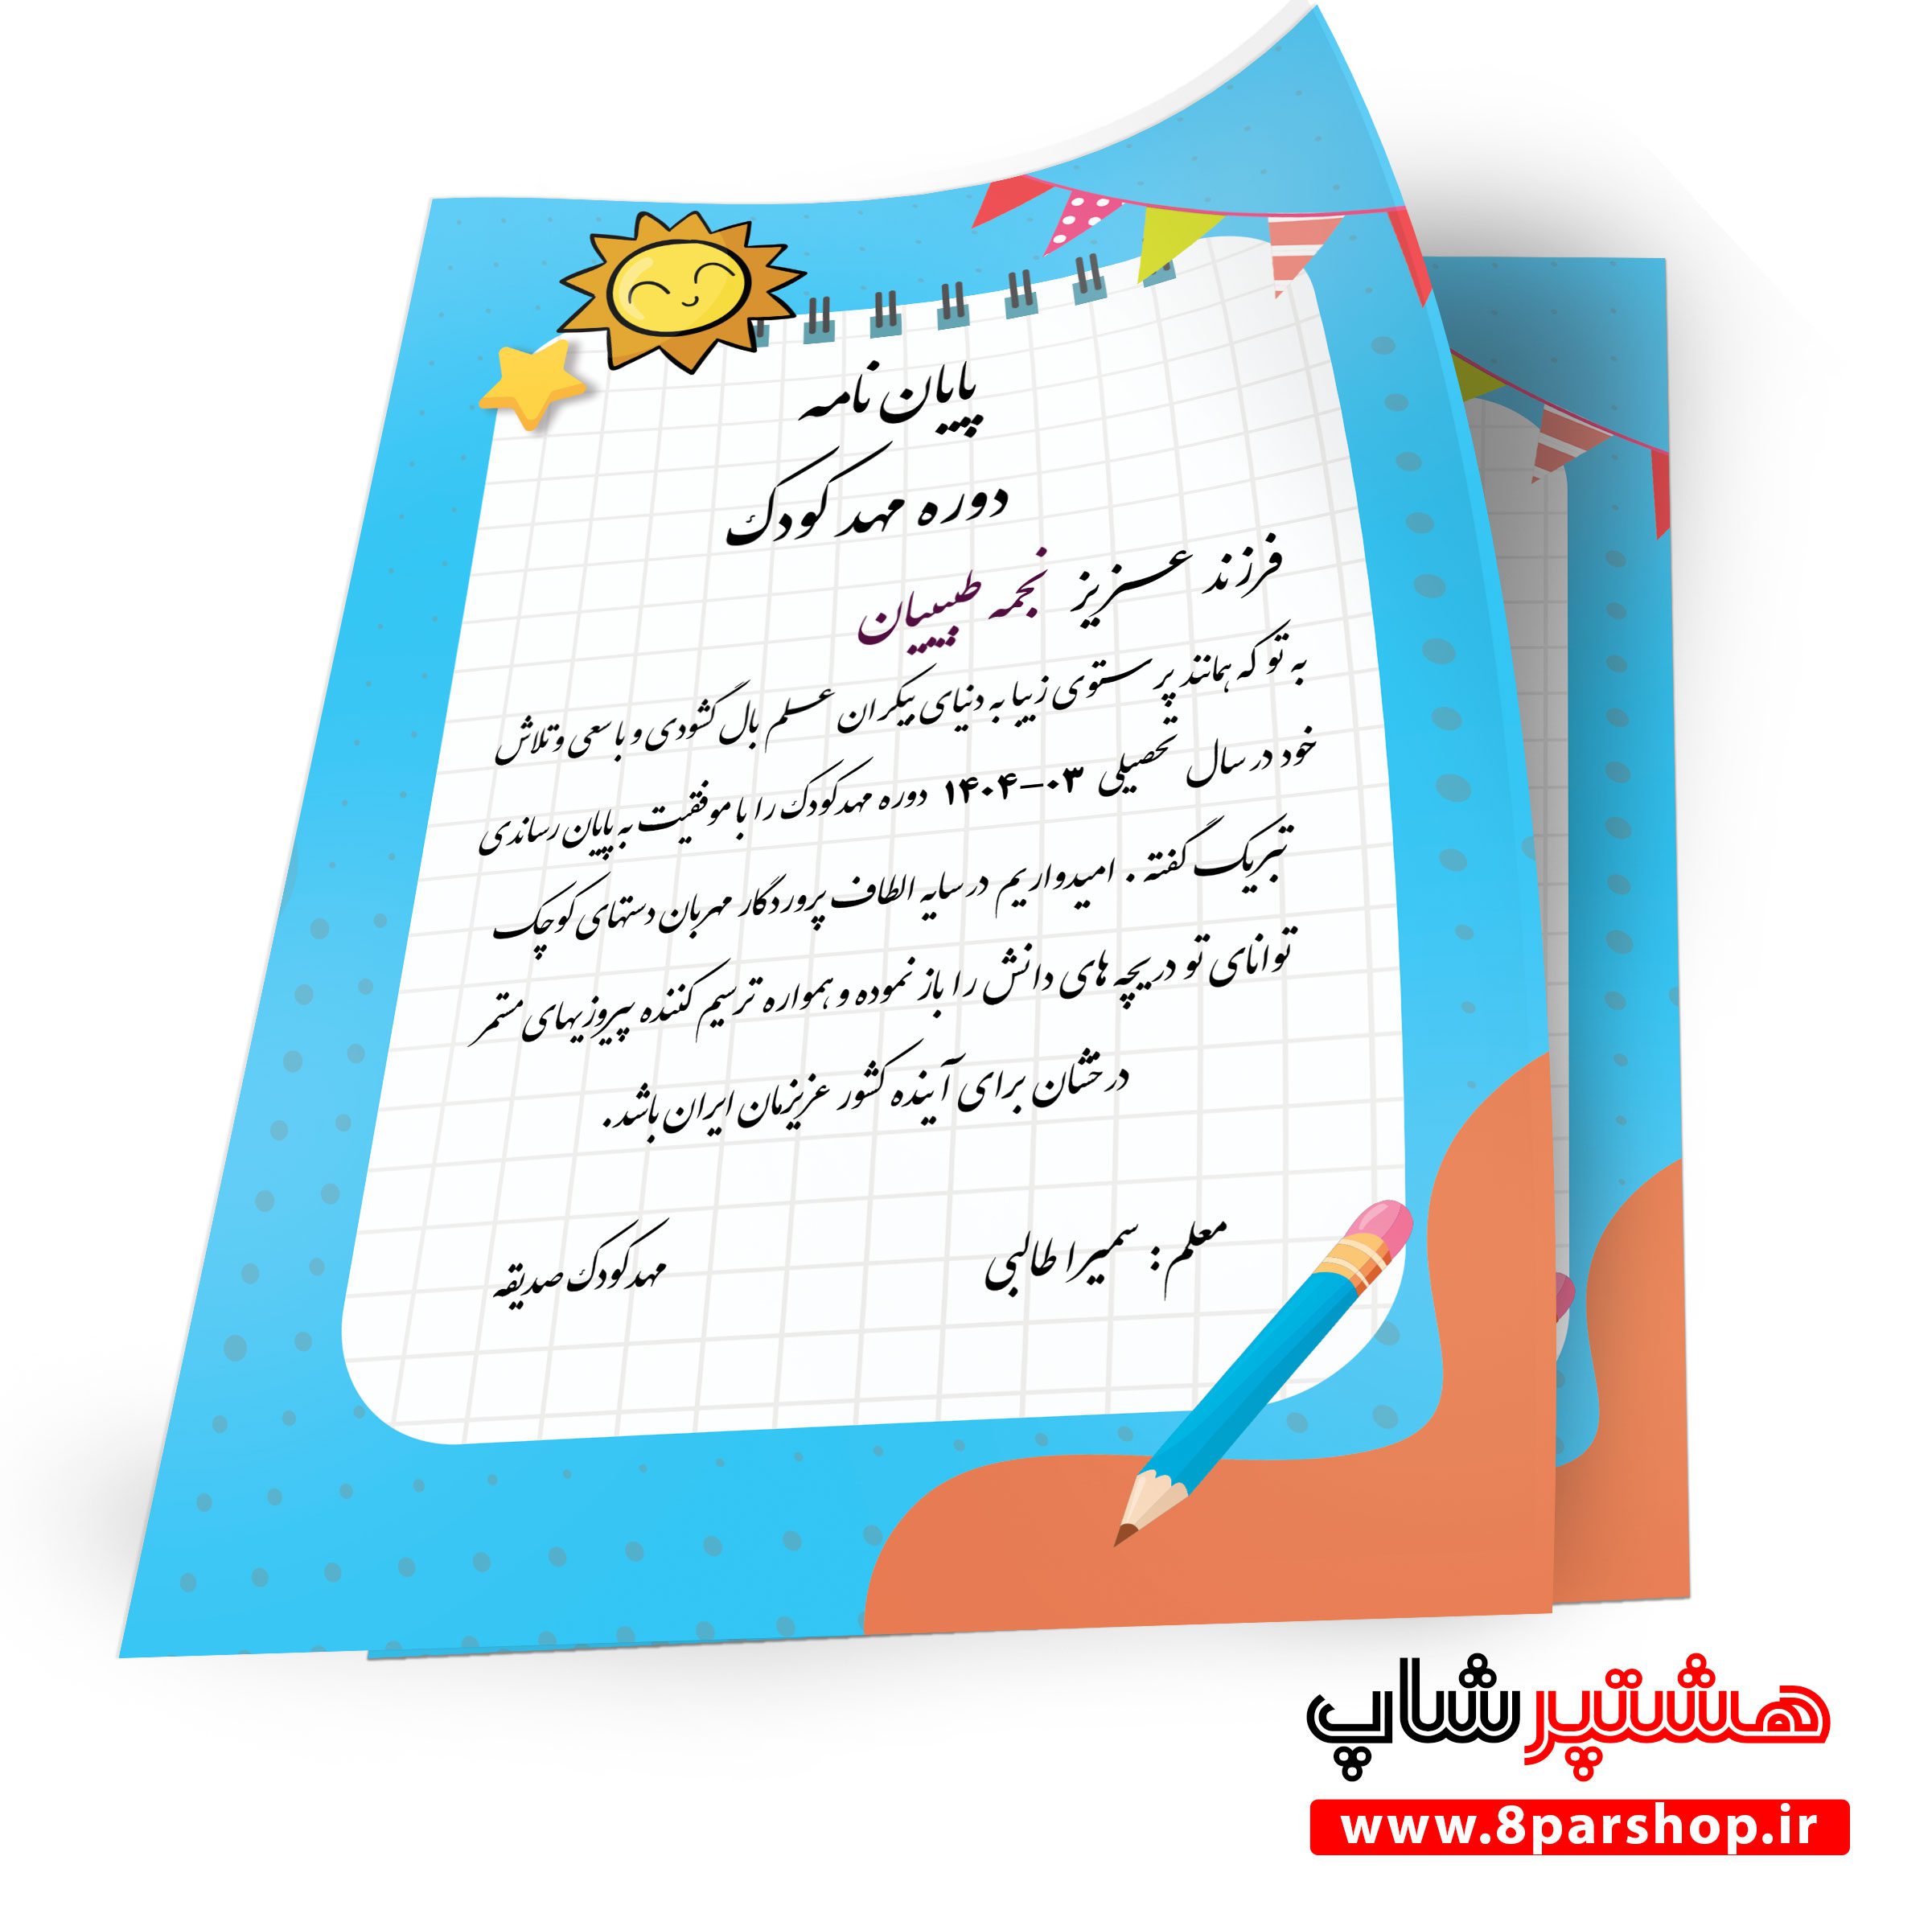 پایان نامه
دوره مهد کودک
فرزند عزیز نجمه طبیبیان
به تو که همانند پرستوی زیبا به دنیای بیکران علم بال گشودی و با سعی و تلاش
خود در سال تحصیلی ۰۳-۱۴۰۴ دوره مهد کودک را با موفقیت به پایان رساندی
تبریک گفته . امیدواریم در سایه الطاف پروردگار مهربان دستهای کوچک
توانای تو دریچه های دانش را باز نموده و همواره ترسیم کننده پیروزیهای مستمر
درخشان برای آینده کشور عزیزمان ایران باشد.
معلم : سمیرا طالبی
مهد کودک صدیقه
هشتپرشاپ
www.8parshop.ir